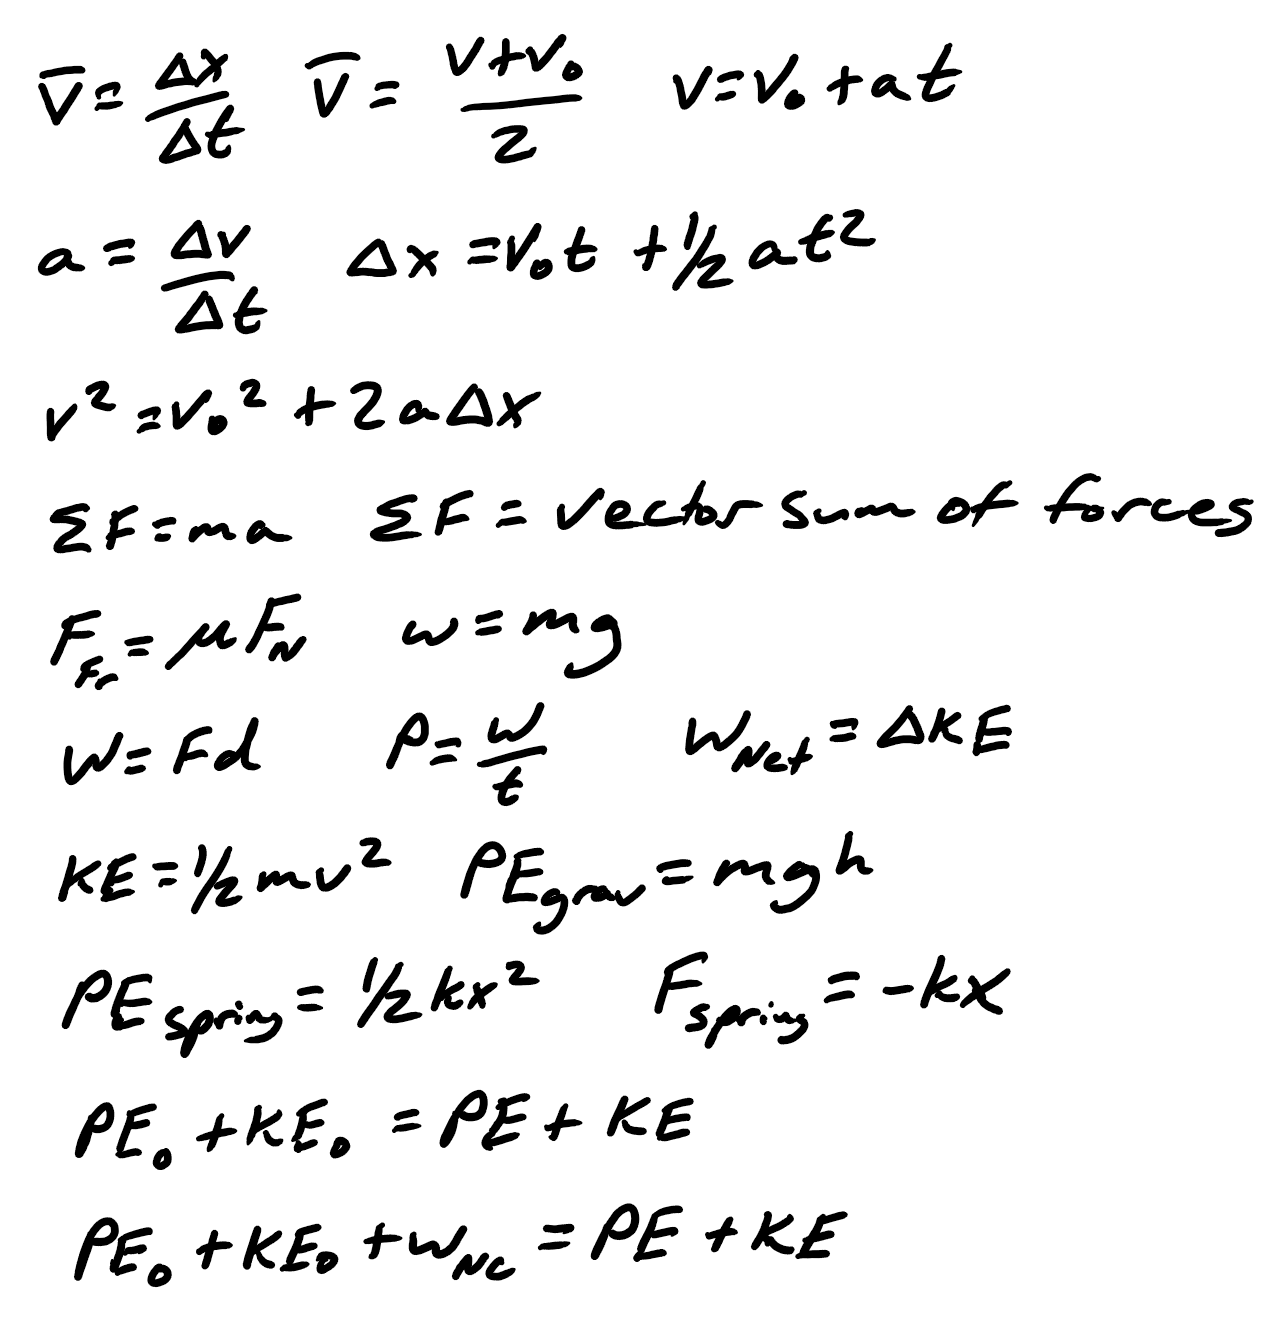 v̄ = Δx/Δt   v̄ = (v+v₀)/2   v = v₀ + at
a = Δv/Δt   Δx = v₀t + ½at²
v² = v₀² + 2aΔx
ΣF = ma   ΣF = vector sum of forces
F_Fr = μF_N   w = mg
W = Fd   P = W/t   W_Net = ΔKE
KE = ½mv²   PE_grav = mgh
PE_spring = ½kx²   F_spring = -kx
PE₀ + KE₀ = PE + KE
PE₀ + KE₀ + W_NC = PE + KE